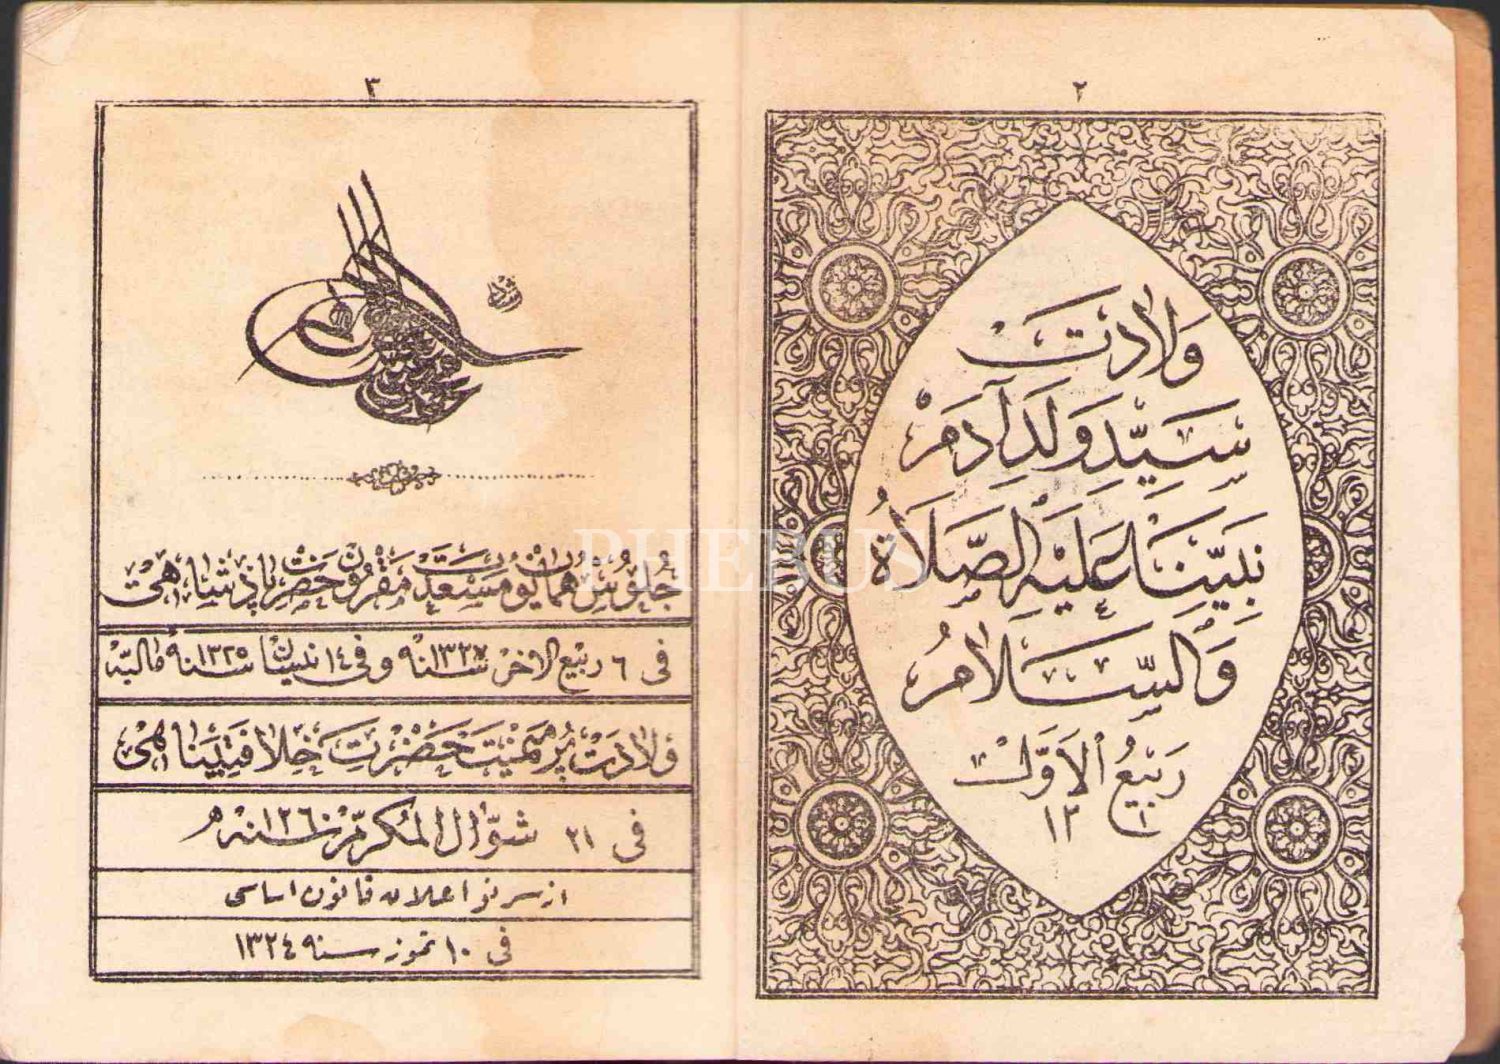 ٢
ولادت
سَيِّدِ وَلَدِ آدَمَ
نَبِيِّنَا عَلَيْهِ الصَّلَاةُ
وَالسَّلَامُ
رَبِيعُ الْأَوَّل
١٢
٣
رشاد
جلوس همايون ميمنت مقرون حضرت پادشاهى
فى ٦ ربيع الاخر سنه ١٣٢٧ و فى ١٤ نيسان سنه ١٣٢٥ ماليه
ولادت پر ميمنت حضرت خلافتپناهى
فى ٢١ شوال المكرم سنه ١٢٦٠
از سر نو اعلان قانون اساسى
فى ١٠ تموز سنه ١٣٢٤
PHEBUS